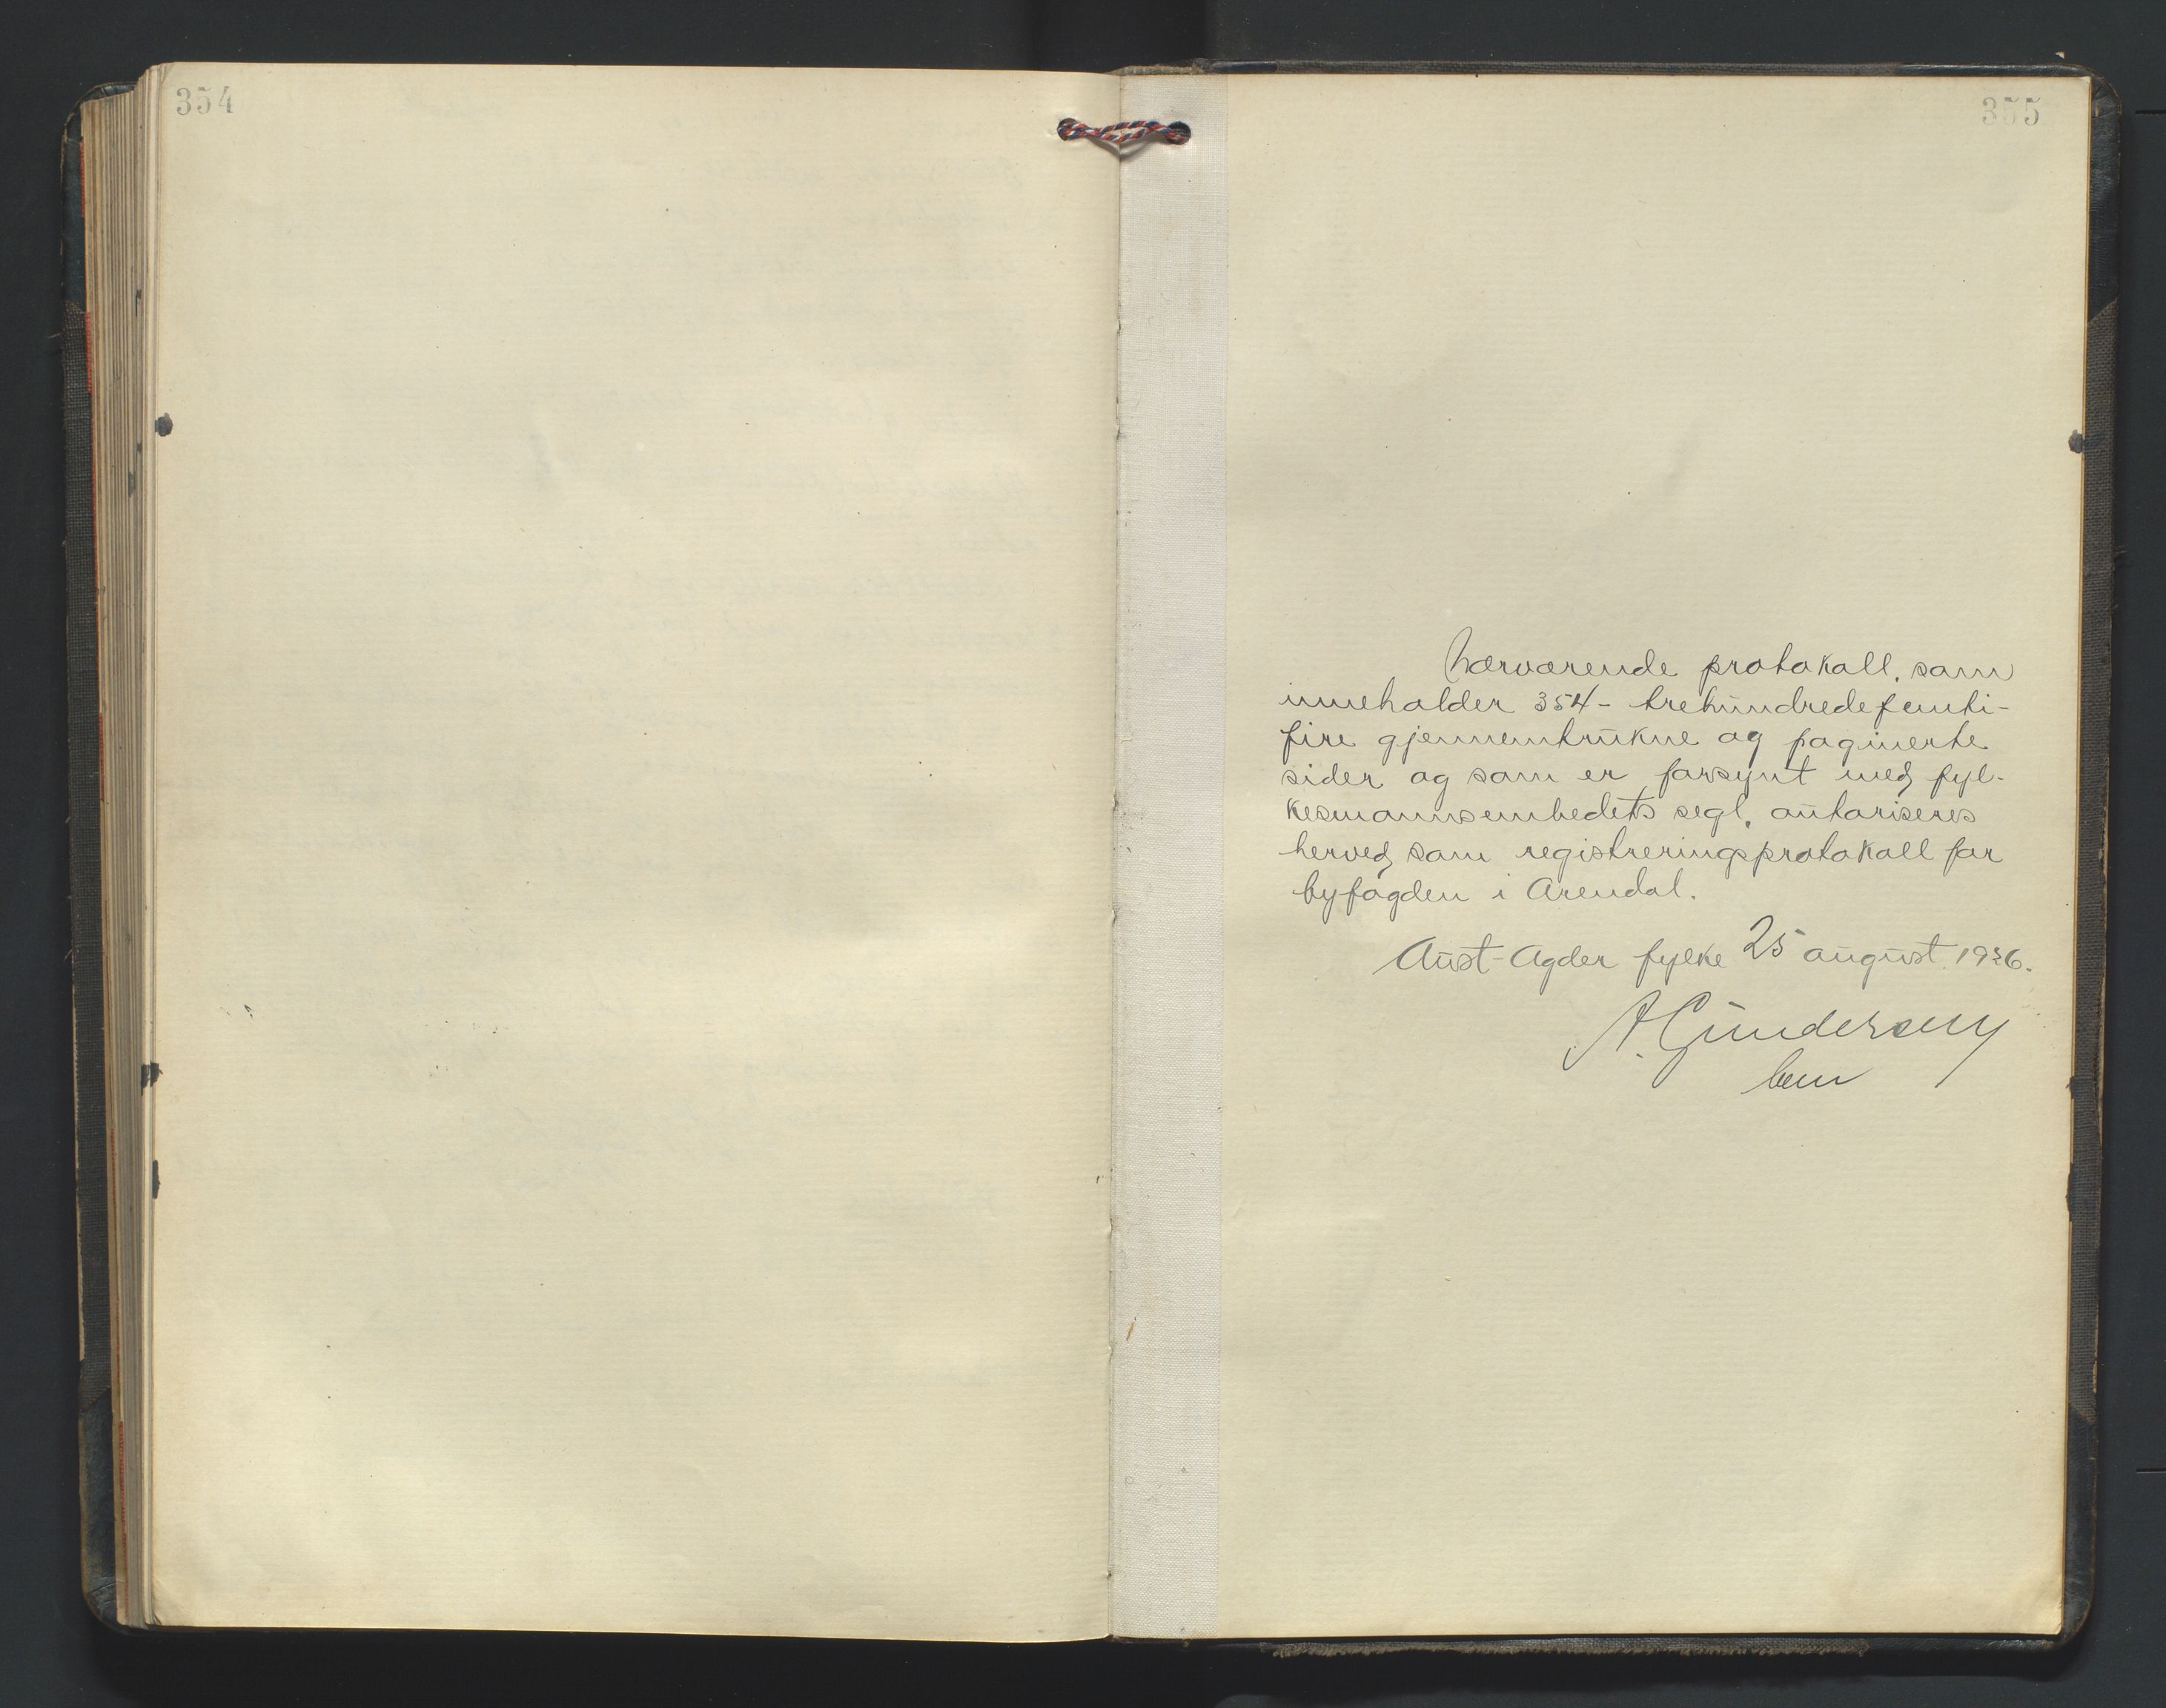 354
355
Nærværende protokoll, som
inneholder 354 - trehundredefemti-
fire gjennemtrukne og paginerte
sider og som er forsynt med fyl-
kesmannsembedets segl, autoriseres
herved som registreringsprotokoll for
byfogden i Arendal.
Aust-Agder fylke 25 august 1926.
A. Gundersen
bem